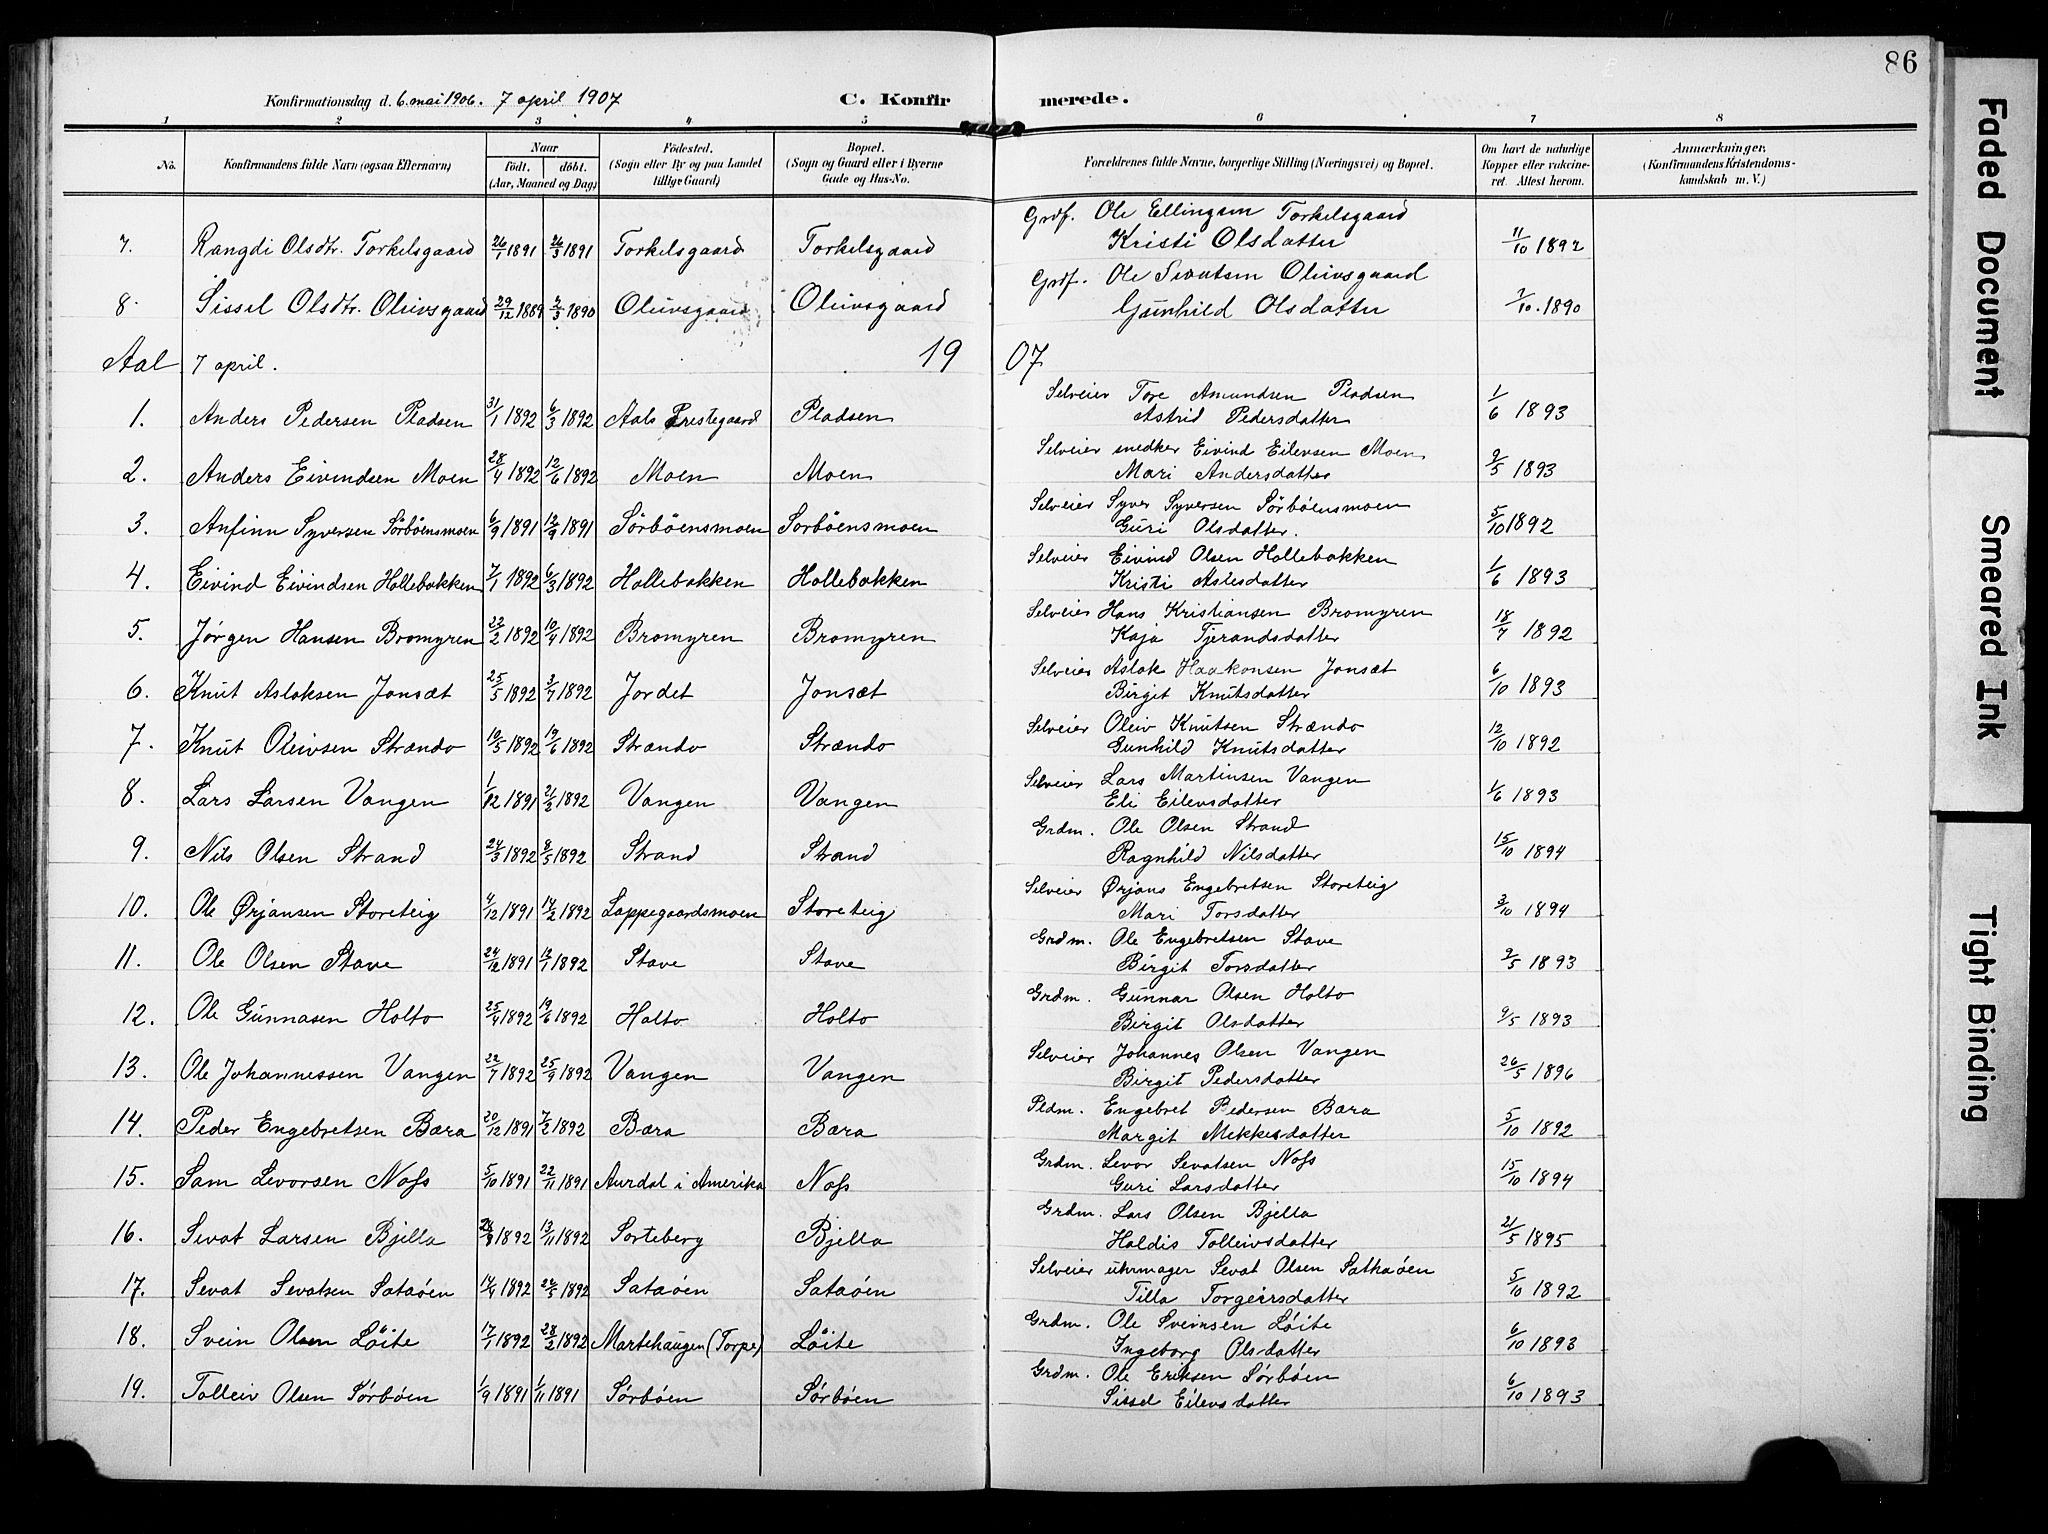 86
Konfirmationsdag d. 6. mai 1906. 7 april 1907 C. Konfirmerede.
1 2 3 4 5 6 7 8
No. Konfirmandens fulde Navn (ogsaa Efternavn) Naar født. døbt. (Aar, Maaned og Dag) Fødested. (Sogn eller By og paa Landet tillige Gaard) Bopæl. (Sogn og Gaard eller i Byerne Gade og Hus-No. Forældrenes fulde Navne, borgerlige Stilling (Næringsvei) og Bopæl. Om havt de naturlige Kopper eller vakcineret. Attest herom. Anmærkninger. (Konfirmandens Kristendomskundskab m. V.)
7. Rangdi Olsdtr. Torkelsgaard 26/1 1891 26/3 1891 Torkelsgaard Torkelsgaard Grdf. Ole Ellingsen Torkelsgaard
Kristi Olsdatter 11/10 1892
8. Sissel Olsdtr. Oleivsgaard 29/12 1889 2/3 1890 Oleivsgaard Oleivsgaard Grdf. Ole Sevatsen Oleivsgaard
Gunhild Olsdatter 7/10. 1890
Aal 7 april. 1907
1. Anders Pedersen Pladsen 31/1 1892 6/3 1892 Aals Prestegaard Pladsen Selveier Tore Amundsen Pladsen
Astrid Pedersdatter 1/6 1893
2. Anders Eivindsen Moen 28/4 1892 12/6 1892 Moen Moen Selveier snedker Eivind Eilevsen Moen
Mari Andersdatter 9/5 1893
3. Anfinn Syversen Sörböensmoen 6/9 1891 12/9 1891 Sörböensmoen Sorböensmoen Selveier Syver Syversen Sörböensmoen
Guri Olsdatter. 5/10 1892
4. Eivind Eivindsen Hallebakken 7/1 1892 6/3 1892 Hallebakken Hallebakken Selveier Eivind Olsen Hallebakken
Kristi Aslesdatter 1/6 1893
5. Jørgen Hansen Bromyren 22/2 1892 10/4 1892 Bromyren Bromyren Selveier Hans Kristiansen Bromyren
Kaja Tjerandsdatter 18/7 1892
6. Knut Aslaksen Jonsæt 25/5 1892 3/7 1892 Jordet Jonsæt Selveier Aslak Haakonsen Jonsæt
Birgit Knutsdatter 6/10 1893
7. Knut Oleivsen Strændo 10/5 1892 19/6 1892 Strændo Strændo Selveier Oleiv Knutsen Strændo
Gunhild Knutsdatter 12/10 1892
8. Lars Larsen Vangen 1/12 1891 21/2 1892 Vangen Vangen Selveier Lars Martinsen Vangen
Eli Eilevsdatter 1/6 1893
9. Nils Olsen Strand 24/3 1892 8/5 1892 Strand Strand Grdm. Ole Olsen Strand
Ragnhild Nilsdatter 15/10 1894
10. Ole Ørjansen Storeteig 4/12 1891 14/2 1892 Lappegaardsmoen Storeteig Selveier Ørjans Engebretsen Storeteig
Mari Torsdatter 3/10 1894
11. Ole Olsen Stave 24/12 1891 12/1 1892 Stave Stave Grdm. Ole Engebretsen Stave
Birgit Torsdatter 9/5 1893
12. Ole Gunnasen Holto 25/4 1892 19/6 1892 Holto Holto Grdm. Gunnar Olsen Holto
Birgit Olsdatter 9/5 1893
13. Ole Johannessen Vangen 22/7 1892 25/9 1892 Vangen Vangen Selveier Johannes Olsen Vangen
Birgit Pedersdatter 26/5 1896
14. Peder Engebretsen Bæra 20/12 1891 7/2 1892 Bæra Bæra Pldm. Engebret Pedersen Bæra
Margit Mekkesdatter 5/10 1892
15. Sam Levorsen Nøss 5/10 1891 22/11 1891 Aurdal i Amerika Nøss Grdm. Levor Sevatsen Nøss
Guri Larsdatter 15/10 1894
16. Sevat Larsen Bjella 1892 13/11 1892 Sorteberg Bjella Grdm. Lars Olsen Bjella
Haldis Tolleivsdatter 21/5 1895
17. Sevat Sevatsen Sataöen 14/4 1892 26/5 1892 Sataöen Sataöen Selveier uhrmager Sevat Olsen Sathaöen
Tilla Torgeirsdatter 5/10 1892
18. Svein Olsen Löite 17/1 1892 28/2 1892 Martehaugen (Torpe) Löite Grdm. Ole Sveinsen Löite
Ingeborg Olsdatter 6/10 1893
19. Tolleiv Olsen Sörböen 1/9 1891 1/11 1891 Sörböen Sörböen Grdm. Ole Eriksen Sörböen
Sissel Eilevsdatter 6/10 1893
Faded Document
Smeared Ink
Tight Binding